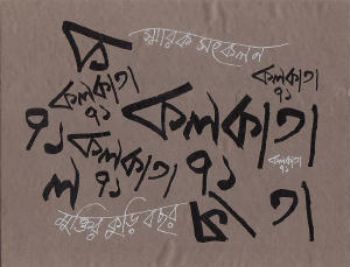 ক
স্মারক সংকলন
কলকাতা
৭১
কলকাতা
৭১
কলকাতা
৭১
৭১
কলকাতা
৭১
কলকাতা
৭১
ল
কা
তা
মুক্তির কুড়ি বছর